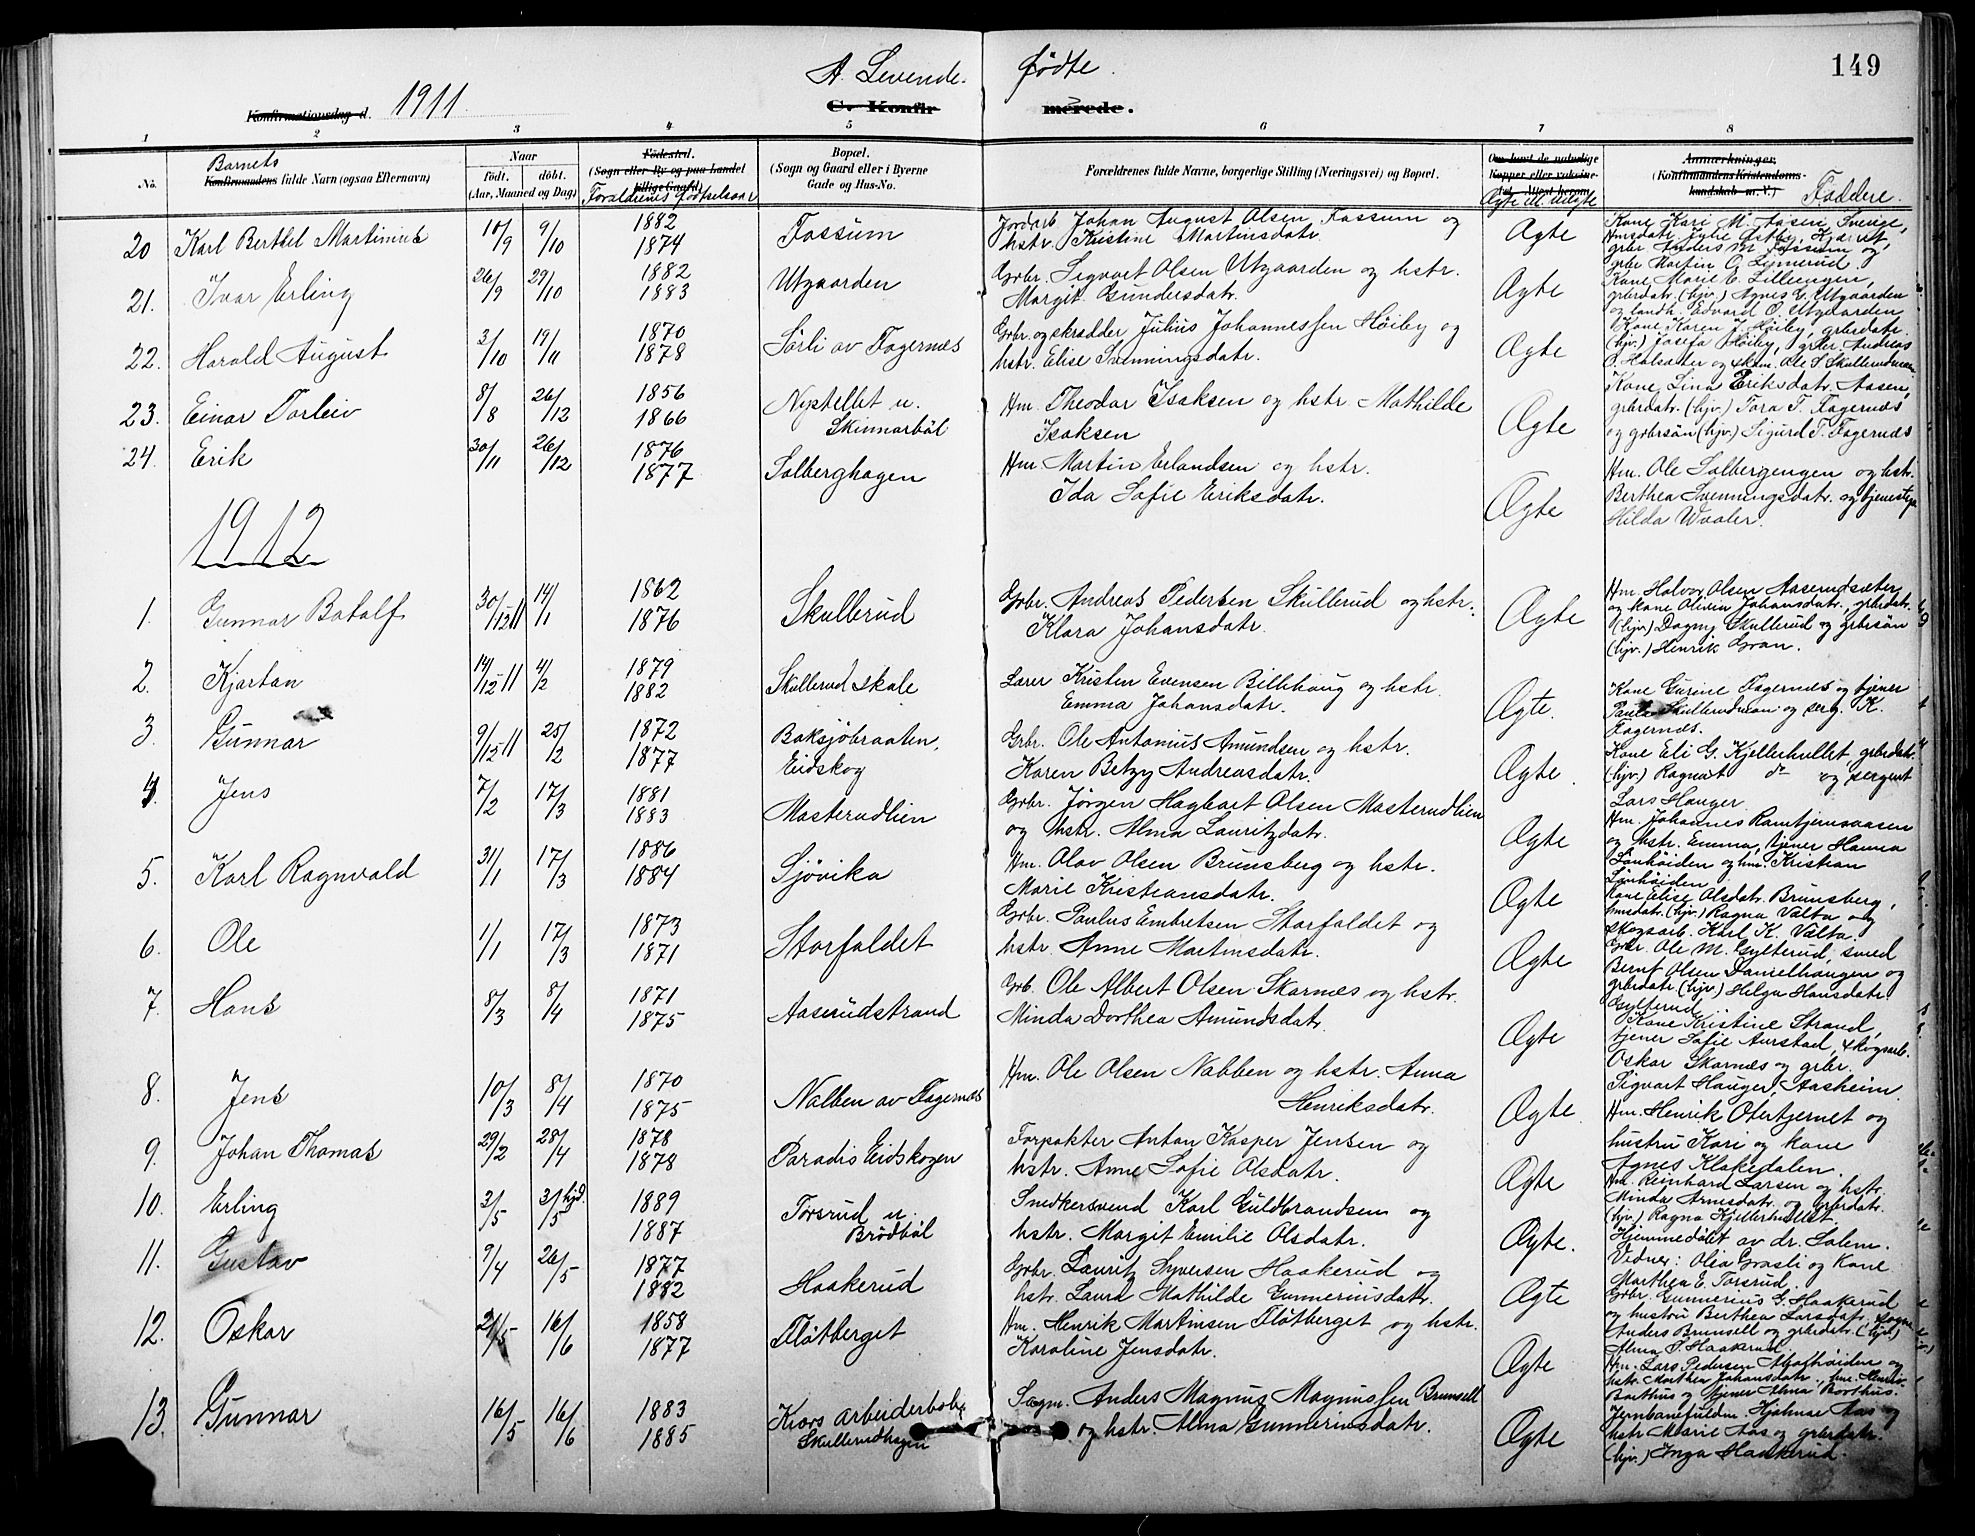 149
A. Levende
fødte.
Konfirmationsdag d. 1911
C. Konfir
merede.
1 2 3 4 5 6 7 8
No.
Barnets
Konfirmandens fulde Navn (ogsaa Efternavn)
Naar
født. døbt.
(Aar, Maaned og Dag)
Fødested.
(Sogn eller By og paa Landet
tillige Gaard)
Forældrenes fødselsaar
Bopæl.
(Sogn og Gaard eller i Byerne
Gade og Hus-No.
Forældrenes fulde Navne, borgerlige Stilling (Næringsvei) og Bopæl.
Om havt de naturlige
Kopper eller vaksine-
Ægte ell. uægte
Anmærkninger.
(Konfirmandens Kristendoms-
kundskab m. V.)
Faddere.
20 Karl Berthel Martinius 10/9 9/10 1882 1874 Fossum
Jordarb. Johan August Olsen Fossum og
hstr. Kristine Martinsdatr. Ægte
Kone Kari M. Aasen Sverige,
grbr. Anders M. Fossum og
grbr Martin O. Linnerud.
21. Ivar Erling 26/9 29/10 1882 1883 Utgaarden
Grbr. Sigvart Olsen Utgaarden og hstr.
Margit Gundersdatr. Ægte
Kone Marie C. Lillengen,
grbrdatr. (hjv.) Agnes E. Utgaarden
og landh. Edvard O. Utgaarden
22. Harald August 3/10 19/11 1870 1878 Sørli av Fagernæs
Grbr. og skrædder Julius Johannessen Høiby og
hstr. Elise Svenningsdatr. Ægte
Kone Karen J. Høiby, grbrdatr.
(hjv.) Josefa Høiby, grbr Andreas
O. Halsæter og skom. Ole S. Skullerudmoen
23. Einar Torleiv 8/8 26/12 1856 1866 Nystellet u.
Skinnarbøl
Hm. Theodor Isaksen og hstr. Mathilde
Isaksen Ægte
Kone Lina Eriksdatr. Aasen,
grbrdatr. (hjv.) Tora T. Fagernæs
og grbrsøn (hjv.) Sigurd T. Fagernæs
24. Erik 30/11 26/12 1876 1877 Solberghagen
Hm. Martin Erlandsen og hstr.
Ida Sofie Eriksdatr. Ægte
Hm. Ole Solbergengen og hstr.
Berthea Svenningsdatr. og tjenestep.
Hilda Waaler.
1912
1. Gunnar Botolf 30/12 11 14/1 1862 1876 Skullerud
Grbr. Andreas Pedersen Skullerud og hstr.
Klara Johansdatr. Ægte
Hm. Halvor Olsen Aaserudsæter
og kone Olivia Johansdatr., grbrdatr.
(hjv.) Dagny Skullerud og grbrsøn
(hjv.) Henrik Gran.
2. Kjartan 14/12 11 4/2 1879 1882 Skullerud skole
Lærer Kristen Evensen Billehaug og hstr.
Emma Johansdatr. Ægte.
Kone Gurine Fagernæs og tjener
Paul Skullerudmoen og serg. K.
Fagernæs.
3. Gunnar 9/12 11 25/2 1872 1877 Boksjøbraaten,
Eidskog
Grbr. Ole Antonius Amundsen og hstr.
Karen Betzy Andreasdatr. Ægte.
Kone Eli G. Kjellerhullet, grbrdatr.
(hjv.) Ragna do og sergent
Lars Hauger
4. Jens 7/2 17/3 1881 1883 Masterudlien
Grbr. Jørgen Hagbart Olsen Masterudlien
og hstr. Alma Lauritzdatr. Ægte
Hm. Johannes Ramtjernsaasen
og hstr. Emma, tjener Hanna
Lønhøiden og hm. Kristian
Lønhøiden
5. Karl Ragnvald 31/1 17/3 1886 1884 Sjøvika
Hm. Olav Olsen Brunsberg og hstr.
Marie Kristiansdatr. Ægte
Kone Elise Olsdatr. Brunsberg,
hmsdatr. (hjv.) Ragna Valta og
skogsarb. Karl K. Valta.
6. Ole 1/1 17/3 1873 1871 Storfaldet
Grbr. Paulus Embretsen Storfaldet og
hstr. Anne Martinsdatr. Ægte
Grbr. Ole M. Gylterud, smed
Bernt Olsen Danielhaugen og
grbrdatr. (hjv.) Helga Hansdatr.
Gylterud
7. Hans 8/3 8/4 1871 1875 Aaserudstrand
Grb. Ole Albert Olsen Skarnæs og hstr.
Minda Dorthea Amundsdatr. Ægte
Kone Kristine Strand,
tjener Sofie Aurstad, skogsarb.
Oskar Skarnæs og grbr.
Sigvart Hauger, Aasheim.
8. Jens 10/3 8/4 1870 1875 Nabben av Fagernæs
Hm. Ole Olsen Nabben og hstr. Anna
Henriksdatr. Ægte.
Hm. Henrik Otertjernet og
hustru Kari og kone
Agnes Klakedalen.
9. Johan Thomas 29/2 28/4 1878 1878 Paradis Eidskogen
Forpakter Anton Kasper Jensen og
hstr. Anne Sofie Olsdatr. Ægte
Hm. Reinhard Larsen og hstr.
Minda Arnesdatr. og grbrdatr.
(hjv.) Ragna Kjellerhullet.
10. Erling 3/5 3/5 hjd. 1889 1887 Torsrud u.
Brødbøl
Snedkersvend Karl Guldbrandsen og
hstr. Margit Emilie Olsdatr. Ægte.
Hjemmedøbt av dr. Salem.
Vidner: Olea Grasli og Kone
Marthea E. Torsrud.
11. Gustav 9/4 26/5 1877 1882 Haakerud
Grbr. Lauritz Syversen Haakerud og
hstr. Laura Mathilde Gunneriusdatr. Ægte
Grbr. Gunnerius G. Haakerud
og hustru Berthea Larsdatr., sogm.
Anders Brunsell og grbrdatr. (hjv.)
Alma S. Haakerud.
12. Oskar 21/5 16/6 1858 1877 Fløtberget
Hm. Henrik Martinsen Fløtberget og hstr.
Karoline Jensdatr. Ægte
Hm. Lars Pedersen og
hstr. Marthea Johansdatr., hm. Henrik
Borthus og tjener Alma Borthus.
13. Gunnar 16/5 16/6 1883 1885 Kiørs arbeiderbolig
Skullerudhagen
Sagm. Anders Magnus Magnussen Brunsell
og hstr. Alma Gunneriusdatr. Ægte
Jernbanefuldm. Hjalmar Aas og
hstr Marie Aas og grbrdatr.
(hjv.) Inga Haakerud.